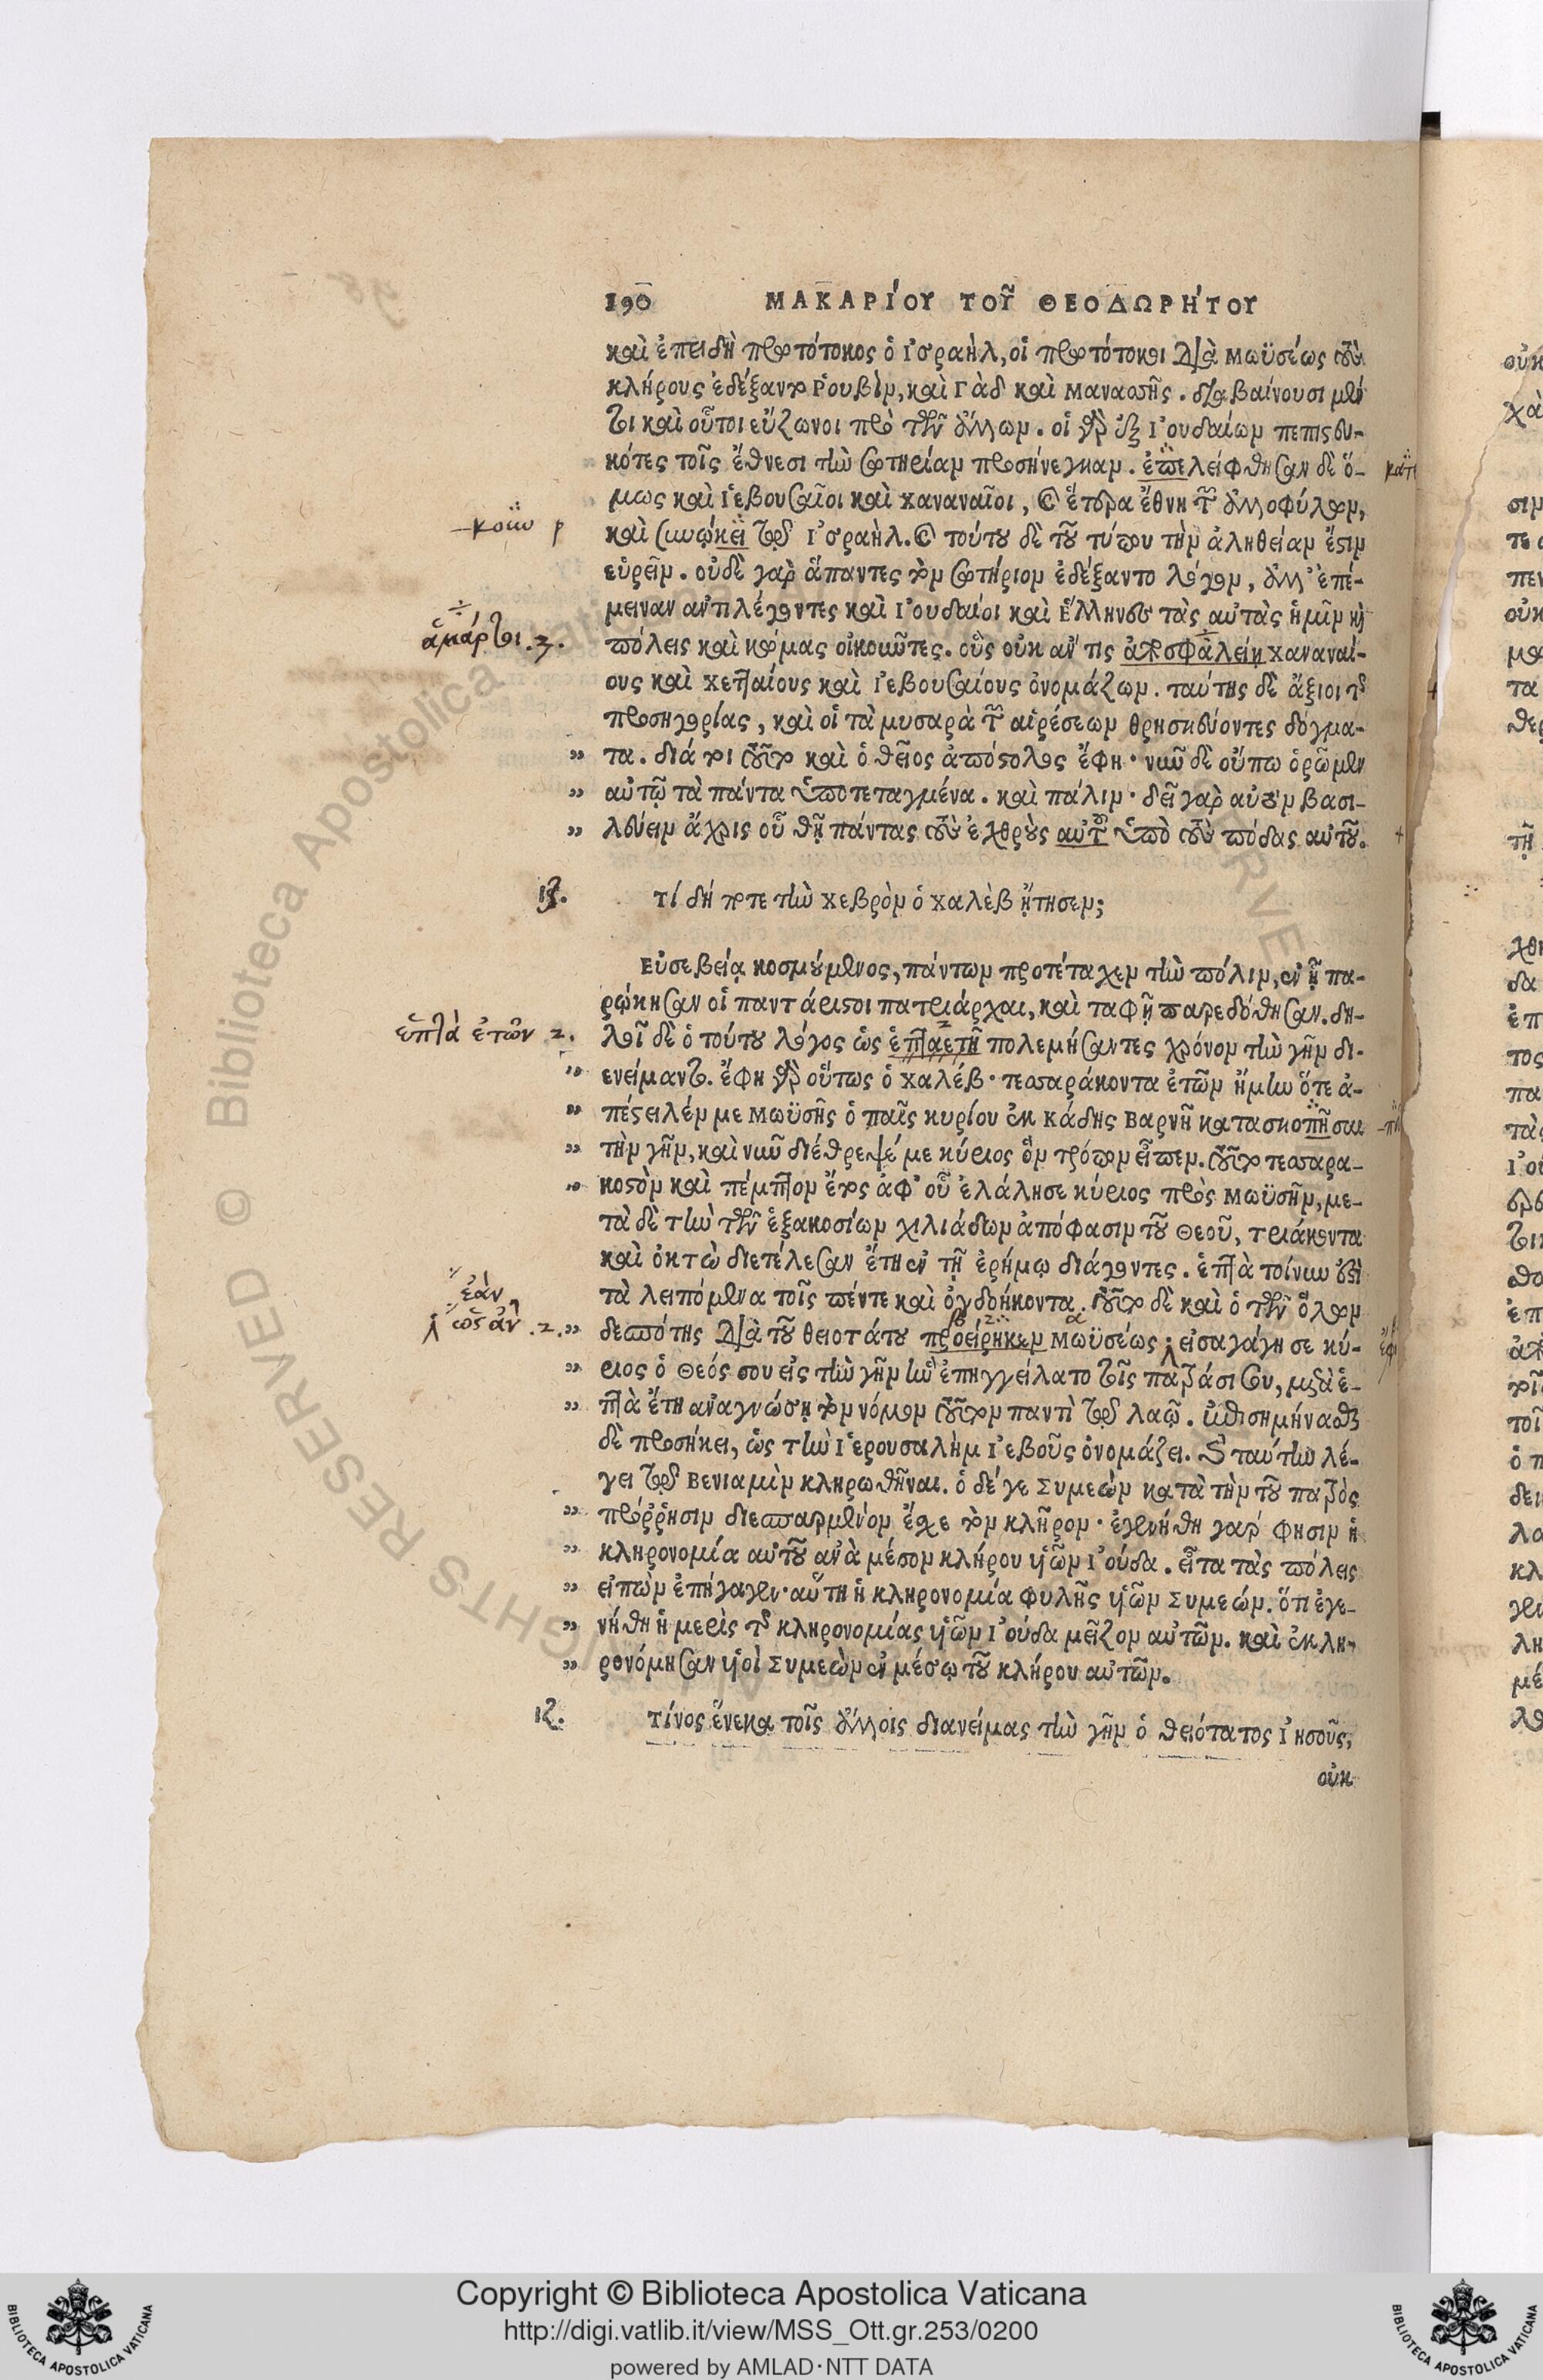 190 ΜΑΚΑΡΊΟΥ ΤΟΥ͂ ΘΕΟΔΩΡΉΤΟΥ
καὶ ἐπειδὴ πρωτότοκος ὁ Ἰσραὴλ, οἱ πρωτότοκοι διὰ Μωϋσέως τοὺς
κλήρους ἐδέξαντο Ῥουβὶμ, καὶ Γὰδ καὶ Μανασσῆς. διαβαίνουσι μέν
τοι καὶ οὗτοι εὔζωνοι πρὸ τῶν ἄλλων. οἱ γὰρ ἐξ Ἰουδαίων πεπιστευ-
κότες τοῖς ἔθνεσι τὴν σωτηρίαν προσήνεγκαν. ἐπελείφθησαν δὲ ὅ-
μως καὶ Ἰεβουσαῖοι καὶ Χαναναῖοι, καὶ ἕτερα ἔθνη τῶν ἀλλοφύλων,
καὶ συνῴκει τῷ Ἰσραὴλ. καὶ τούτου δὲ τοῦ τύπου τὴν ἀλήθειαν ἔστιν
εὑρεῖν. οὐδὲ γὰρ ἅπαντες τὸν σωτήριον ἐδέξαντο λόγον, ἀλλ' ἐπέ-
μειναν ἀντιλέγοντες καὶ Ἰουδαίοι καὶ Ἕλληνες τὰς αὐτὰς ἡμῖν καὶ
πόλεις καὶ κώμας οἰκοῦντες. οὓς οὐκ ἄν τις ἀποσφαλείη Χαναναί-
ους καὶ Χετταίους καὶ Ἰεβουσαίους ὀνομάζων. ταύτης δὲ ἄξιοι τῆς
προσηγορίας, καὶ οἱ τὰ μυσαρὰ τῶν αἱρέσεων θρησκεύοντες δόγμα-
" τα. διά τοι τοῦτο καὶ ὁ θεῖος ἀπόστολος ἔφη· νυνὶ δὲ οὔπω ὁρῶμεν
" αὐτῷ τὰ πάντα ὑποτεταγμένα. καὶ πάλιν· δεῖ γὰρ αὐτὸν βασι-
" λεύειν ἄχρις οὗ θῇ πάντας τοὺς ἐχθρὺς αὐτοῦ ὑπὸ τοὺς πόδας αὐτοῦ.
Τί δή ποτε τὴν Χεβρὸν ὁ Χαλὲβ ᾔτησεν;
Εὐσεβείᾳ κοσμούμενος, πάντων προτέταχεν τὴν πόλιν, ἐν ᾗ πα-
ρῴκησαν οἱ παντάριστοι πατριάρχαι, καὶ ταφῇ παρεδόθησαν. δη-
ἑπτὰ ἐτῶν 2. λοῖ δὲ ὁ τούτου λόγος ὡς ἑπταετῆ πολεμήσαντες χρόνον τὴν γῆν δι-
" ενείμαντο. ἔφη γὰρ οὕτως ὁ Χαλέβ· τεσσαράκοντα ἐτῶν ἤμην ὅτε ἀ-
" πέστειλέν με Μωϋσῆς ὁ παῖς κυρίου ἐκ Κάδης Βαρνῆ κατασκοπῆσαι
" τὴν γῆν, καὶ νῦν διέθρεψέ με κύριος ὃν τρόπον εἶπεν. τοῦτο τεσσαρα-
" κοστὸν καὶ πέμπτον ἔτος ἀφ' οὗ ἐλάλησε κύριος πρὸς Μωϋσῆν, με-
τὰ δὲ τὴν τῶν ἑξακοσίων χιλιάδων ἀπόφασιν τοῦ Θεοῦ, τριάκοντα
καὶ ὀκτὼ διετέλεσαν ἔτη ἐν τῇ ἐρήμῳ διάγοντες. ἑπτὰ τοίνυν ἐστὶ
τὰ λειπόμενα τοῖς πέντε καὶ ὀγδοήκοντα. τοῦτο δὲ καὶ ὁ τῶν ὅλων
" δεσπότης διὰ τοῦ θειοτάτου προείρηκεν Μωϋσέως· εἰσαγάγη σε κύ-
" ριος ὁ Θεός σου εἰς τὴν γῆν ἣν ἐπηγγείλατο τοῖς πατράσι σου, μετὰ ἑ-
" πτὰ ἔτη ἀναγνώσῃ τὸν νόμον τοῦτον παντὶ τῷ λαῷ. ἐπισημήνασθαι
δὲ προσήκει, ὡς τὴν Ἱερουσαλὴμ Ἰεβοῦς ὀνομάζει. καὶ ταύτην λέ-
γει τῷ Βενιαμὶν κληρωθῆναι. ὁ δέ γε Συμεὼν κατὰ τὴν τοῦ πατρὸς
" πρόῤῥησιν διεσπαρμένον ἔσχε τὸν κλῆρον· ἐγενήθη γαρ φησιν ἡ
" κληρονομία αὐτοῦ ἀνὰ μέσον κλήρου υἱῶν Ἰούδα. εἶτα τὰς πόλεις
" εἰπὼν ἐπήγαγεν· αὕτη ἡ κληρονομία φυλῆς υἱῶν Συμεών. ὅτι ἐγε-
" νήθη ἡ μερὶς τῆς κληρονομίας υἱῶν Ἰούδα μεῖζον αὐτῶν. καὶ ἐκλη-
" ρονόμησαν υἱοὶ Συμεὼν ἐν μέσῳ τοῦ κλήρου αὐτῶν.
Τίνος ἕνεκα τοῖς ἄλλοις διανείμας τὴν γῆν ὁ θειότατος Ἰησοῦς,
οὐκ
ἁμάρτοι. 3.
ἐὰν
ὡς ἂν. 2.
© Biblioteca Apostolica Vaticana
Copyright © Biblioteca Apostolica Vaticana
http://digi.vatlib.it/view/MSS_Ott.gr.253/0200
powered by AMLAD·NTT DATA
BIBLIOTECA APOSTOLICA VATICANA
BIBLIOTECA APOSTOLICA VATICANA